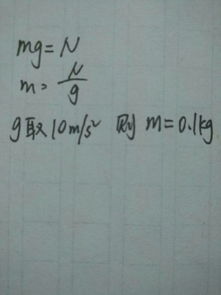 mg=N
m=N/g
g取10m/s² 则 m=0.1kg